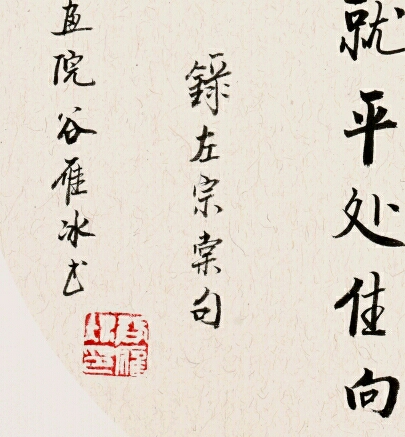 就平处住向
録左宗棠句
画院谷雁冰书